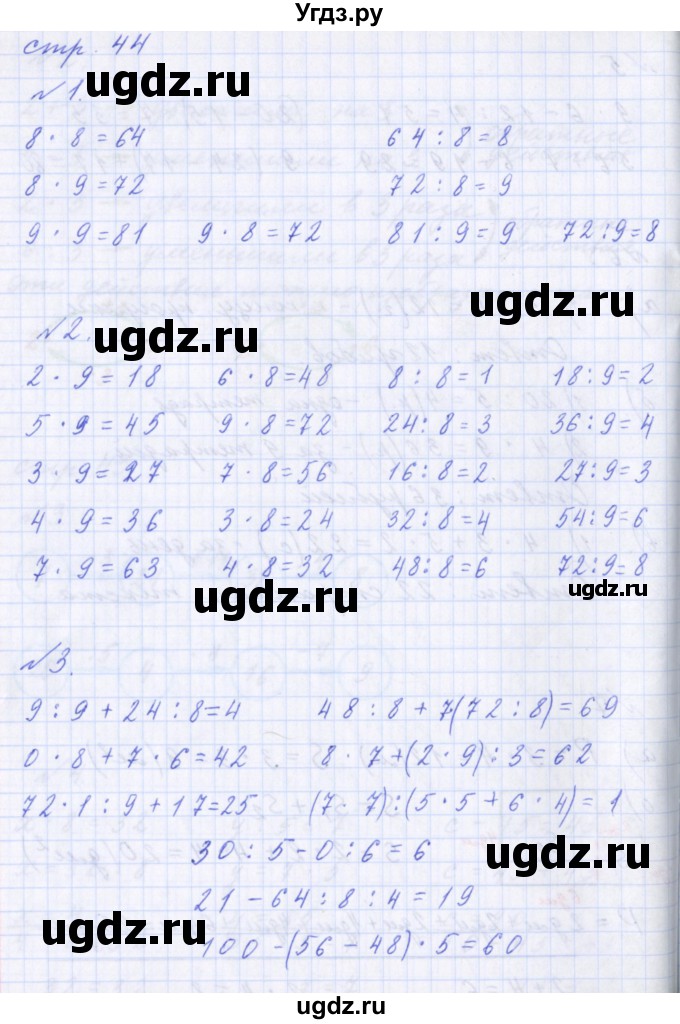 Угдз.ру
стр. 44
ugdz.ru
№1.
8 · 8 = 64 64 : 8 = 8
8 · 9 = 72 72 : 8 = 9
9 · 9 = 81 9 · 8 = 72 81 : 9 = 9 72 : 9 = 8
ugdz.ru
ugdz.ru
№2.
2 · 9 = 18 6 · 8 = 48 8 : 8 = 1 18 : 9 = 2
5 · 9 = 45 9 · 8 = 72 24 : 8 = 3 36 : 9 = 4
3 · 9 = 27 7 · 8 = 56 16 : 8 = 2. 27 : 9 = 3
4 · 9 = 36 3 · 8 = 24 32 : 8 = 4 54 : 9 = 6
7 · 9 = 63 4 · 8 = 32 48 : 8 = 6 72 : 9 = 8
ugdz.ru
ugdz.ru
№3.
9 : 9 + 24 : 8 = 4 48 : 8 + 7(72 : 8) = 69
0 · 8 + 7 · 6 = 42 8 · 7 + (2 · 9) : 3 = 62
72 · 1 : 9 + 17 = 25 (7 · 7) : (5 · 5 + 6 · 4) = 1
30 : 5 - 0 : 6 = 6
ugdz.ru
21 - 64 : 8 : 4 = 19
ugdz.ru
100 - (56 - 48) · 5 = 60
ugdz.ru